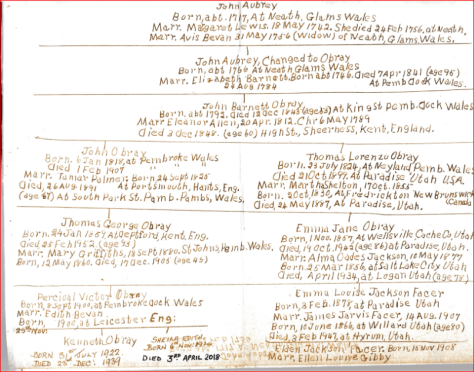 John Aubrey
Born, abt. 1717, At Neath, Glams Wales
Marr. Margaret Lewis. 18 May 1742. She died 24 Feb 1756, at Neath.
Marr. Avis Bevan 31 May 1756 (Widow) of Neath, Glams. Wales.
John Aubrey, Changed to Obray
Born, abt 1764 At Neath Glams Wales
Marr. Elizabeth Barnett. Born abt 1746. Died 7 Apr 1841 (age 95)
24 Aug 1784 At Pemb Dock Wales.
John Barnett Obray.
Born, abt 1792. Died 18 Dec 1845 At King st Pemb. Dock Wales
Marr Eleanor Allen, 20 Apr. 1812. Chr 6 May 1789
Died 3 Dec 1848. (age 60) High St., Sheerness, Kent, England.
John Obray
Born. 6 Jan 1818, at Pembroke Wales
Died 1 Feb 1907 " "
Marr. Tamar Palmer. Born 24 Sept 1825
Died, 26 Aug 1891 At Portsmouth, Hants, Eng.
At South Park St. Pemb. Pembs, Wales.
Thomas Lorenzo Obray
Born. 23 July 1824, At Neyland Pemb. Wales
Died 21 Oct 1899. At Paradise Utah U.S.A.
Marr. Martha Shelton, 17 Oct. 1855
Born. 20 Oct 1830, At Fredrickton New Brunswick
Canada
Died, 26 May 1887, At Paradise, Utah.
Thomas George Obray
Born, 24 Jan 1857 At Deptford, Kent. Eng.
Died, 25 Feb 1952 (age 95)
Marr. Mary Griffiths, 18 Sept 1880. St Johns, Pemb. Wales.
Born, 12 May 1860. Died, 19 Dec. 1905 (age 45)
Emma Jane Obray
Born, 1 Nov. 1857, At Wellsville Cache Co. Utah
Died, 19 Oct. 1945 At Paradise, Utah.
Marr. Alma Oades Jackson, 10 May 1877
Born, 25 Mar 1856, at Salt Lake City Utah
Died, April 1934, at Logan Utah (78)
Percival Victor Obray
Born, 2 Sept 1900, at Pembroke Dock Wales
Marr. Edith Bevan.
Born, 1900, at Leicester Eng:
25 Nov
Emma Louise Jackson Facer
Born, 2 Feb. 1878 at Paradise Utah
Marr. James Jarvis Facer, 14 Aug. 1907
Born, 10 June 1866, at Willard Utah (age 80)
Died, 2 Feb 1947, at Hyrum, Utah.
Kenneth Obray
BORN 31st JULY 1922
DIED 25th DEC: 1939
SHEILA EDITH
BORN 6th NOV
DIED 3rd APRIL 2018
Ellen Jackson Facer. Born, 16 Nov 1908
Marr. Ellen Louine Gibby